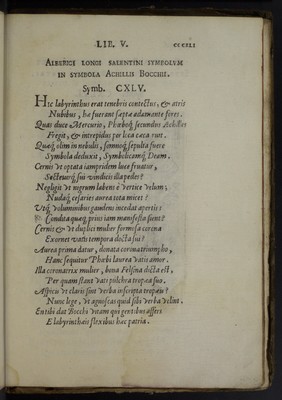 LIB. V.
CCCXLI
ALBERICI LONGI SALENTINI SYMBOLVM
IN SYMBOLA ACHILLIS BOCCHII.
Symb. CXLV.
HIc labyrinthus erat tenebris contectus, & atris
Nubibus, hæ fuerant septæ adamante fores.
Quas duce Mercurio, Phœboq; secundus Achilles
Fregit, & intrepidus per loca cæca ruit.
Quæq; olim in nebulis, somnoq; sepulta fuere
Symbola deduxit, Symbolicamq; Deam.
Cernis ut optata iampridem luce fruatur,
sui vindicis illa pedes?
Negligit ut nigrum labens è vertice velum;
Nudaq; cæsaries aurea tota micet?
Utq; voluminibus gaudens incedat apertis:
Condita quæq; prius iam manifesta sient?
Cernis & ut duplici mulier formosa corona
Exornet vatis tempora docta sui?
Aurea prima datur, donata corona triumpho,
Hanc sequitur Phœbi laurea vatis amor.
Illa coronatrix mulier, bona Felsina dicta est,
Per quam stant vati pulchra tropæa suo.
Aspicis ut claris sint verba inscripta tropæis?
Nunc lege, ut agnoscas quid sibi verba velint.
En tibi dat Bocchi vitam qui gentibus affers
E labyrinthæis flexibus hæc patria.